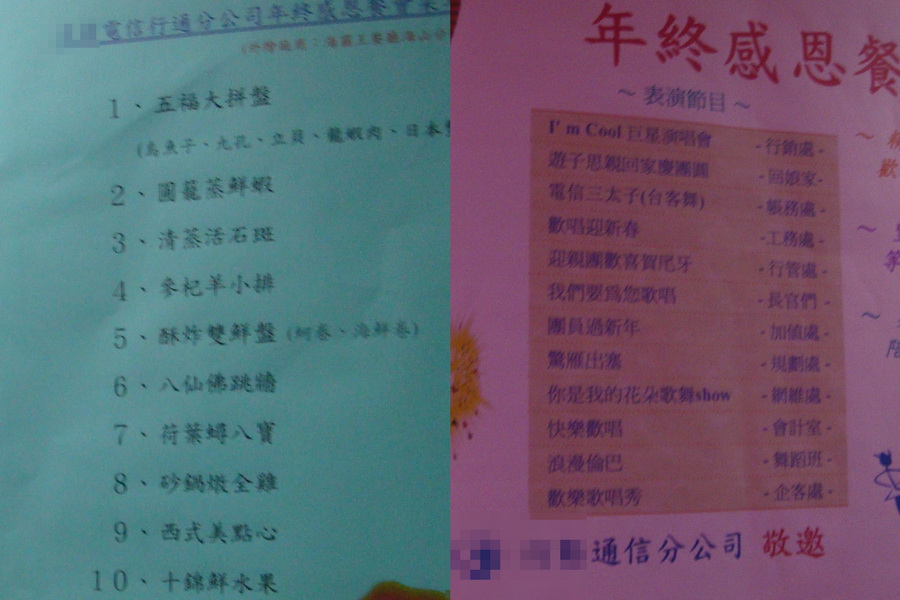 電信行通分公司年終感恩餐會菜
1、五福大拼盤
(烏魚子、九孔、立貝、龍蝦肉、日本
2、圓籠蒸鮮蝦
3、清蒸活石斑
4、參杞羊小排
5、酥炸雙鮮盤 (蚵卷、海鮮卷)
6、八仙佛跳牆
7、荷葉蟳八寶
8、砂鍋燉全雞
9、西式美點心
10、十錦鮮水果
年終感恩餐
～ 表演節目 ～
I' m Cool 巨星演唱會 - 行銷處 -
遊子思親回家慶團圓 - 回娘家-
電信三太子(台客舞) - 帳務處 -
歡唱迎新春 -工務處 -
迎親團歡喜賀尾牙 - 行管處 -
我們要為您歌唱 - 長官們 -
團員過新年 - 加值處 -
驚雁出塞 - 規劃處 -
你是我的花朵歌舞show - 網維處 -
快樂歡唱 - 會計室 -
浪漫倫巴 - 舞蹈班 -
歡樂歌唱秀 - 企客處 -
通信分公司 敬邀